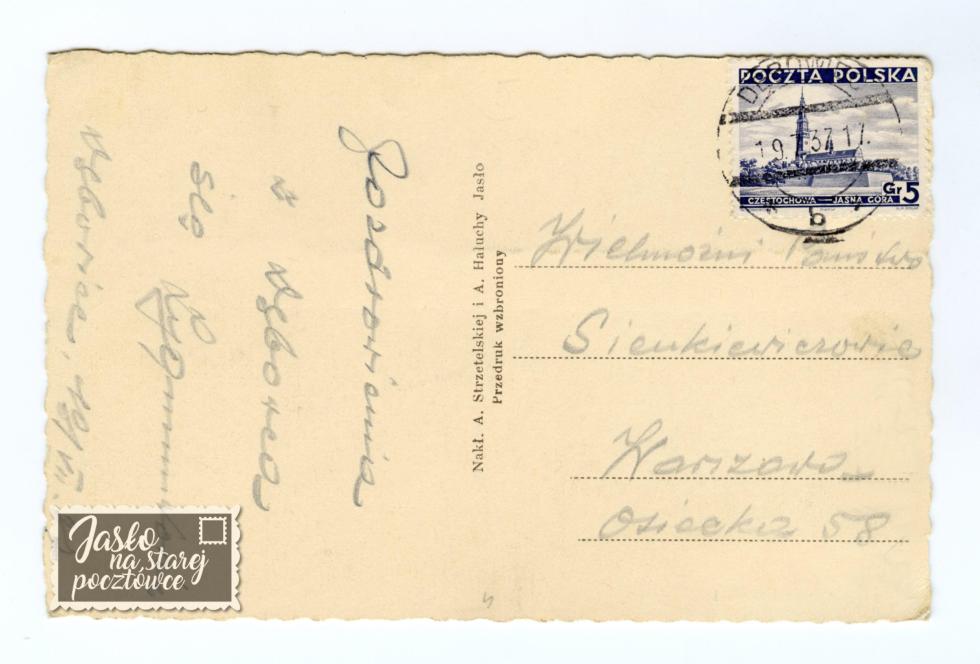 Pozdrowienia
z Dębowca
śle
Zygmunt
Dębowiec, 19/VII
Nakł. A. Strzetelskiej i A. Hałuchy Jasło
Przedruk wzbroniony
POCZTA POLSKA
19. 37 17
Gr 5
CZĘSTOCHOWA — JASNA GÓRA
b
Wielmożni Państwo
Sienkiewiczowie
Warszawa
Osiecka 58
Jasło
na starej
pocztówce